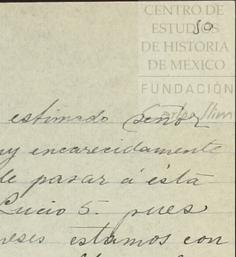 CENTRO DE
ESTUDIOS
DE HISTORIA
DE MEXICO
FUNDACIÓN
50
estimado Señor
uy encarecidamente
de pasar á ésta
Lucio 5. pues
eses estamos con